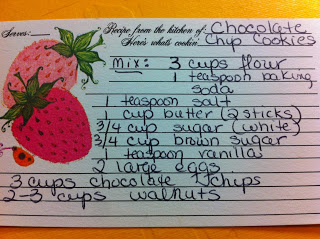 Serves:
Recipe from the kitchen of: Chocolate
Here's what's cookin' Chip Cookies
Mix: 3 cups flour
1 teaspoon baking
soda
1 teaspoon salt
1 cup butter (2 sticks)
3/4 cup sugar (white)
3/4 cup brown sugar
1 teaspoon vanilla
2 large eggs
3 cups chocolate chips
2-3 cups walnuts